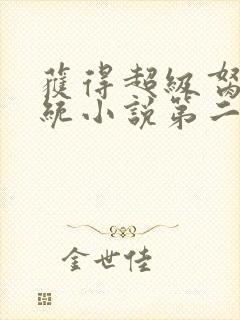 獲得超級
統小說第二
金世佳